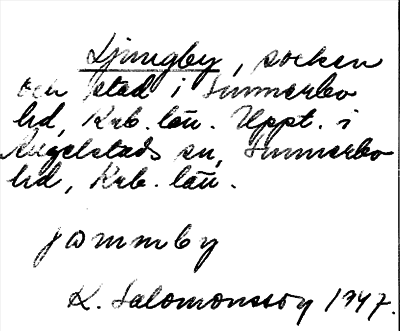 Ljungby, socken
och stad i Sunnerbo
hd, Krb. län. Uppt. i
Angelstads sn, Sunnerbo
hd, Krb. län.
jømmby
K. Salomonsson 1947.